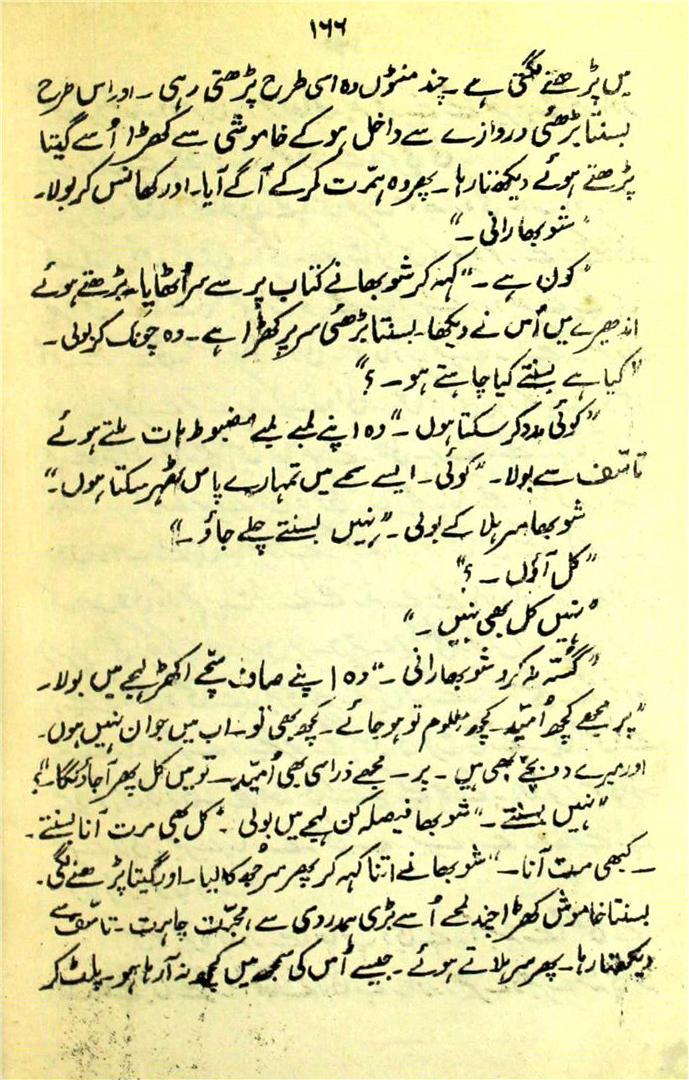 ۱۶۶
میں پڑھنے لگتی ہے۔ چند منٹوں وہ اسی طرح پڑھتی رہی۔ اور اس طرح
بسنتا بڑھئی دروازے سے داخل ہو کے خاموشی سے کھڑا اُسے گیتا
پڑھتے ہوئے دیکھتا رہا۔ پھر وہ ہمّت کر کے آگے آیا۔ اور کھانس کر بولا۔
"شوبھا رانی۔"
"کون ہے۔" کہہ کر شوبھا نے کتاب پر سے سر اُٹھایا۔ بڑھتے ہوئے
اندھیرے میں اُس نے دیکھا۔ بسنتا بڑھئی سر پر کھڑا ہے۔ وہ چونک کر بولی۔
"کیا ہے بسنتے کیا چاہتے ہو۔؟"
"کوئی مدد کر سکتا ہوں۔" وہ اپنے لمبے لمبے مضبوط ہات ملتے ہوئے
تاسّف سے بولا۔ "کوئی۔ ایسے سمے میں تمہارے پاس ٹھہر سکتا ہوں۔"
شوبھا سر ہلا کے بولی۔ "نہیں بسنتے چلے جاؤ۔"
"کل آؤں۔؟"
"نہیں کل بھی نہیں۔"
"گسّہ نہ کرو شوبھا رانی۔" وہ اپنے صاف سچّے اکھڑ لہجے میں بولا۔
"پر مجھے کچھ اُمّید۔ کچھ مالوم تو ہو جائے۔ کچھ بھی تو۔ اب میں جوان نہیں ہوں۔
اور میرے دو بچّے بھی ہیں۔ پر۔ مجھے ذرا سی بھی اُمّید۔ تو میں کل پھر آ جاؤنگا۔؟"
"نہیں بسنتے۔" شوبھا فیصلہ کن لہجے میں بولی۔ "کل بھی مت آنا بسنتے۔
۔ کبھی مت آنا۔" شوبھا نے اتنا کہہ کر پھر سر جھکا لیا۔ اور گیتا پڑھنے لگی۔
بسنتا خاموش کھڑا چند لمحے اُسے بڑی ہمدردی سے، محبّت چاہت۔ تاسّف سے
دیکھتا رہا۔ پھر سر ہلاتے ہوئے۔ جیسے اُس کی سمجھ میں کچھ نہ آ رہا ہو۔ پلٹ کر